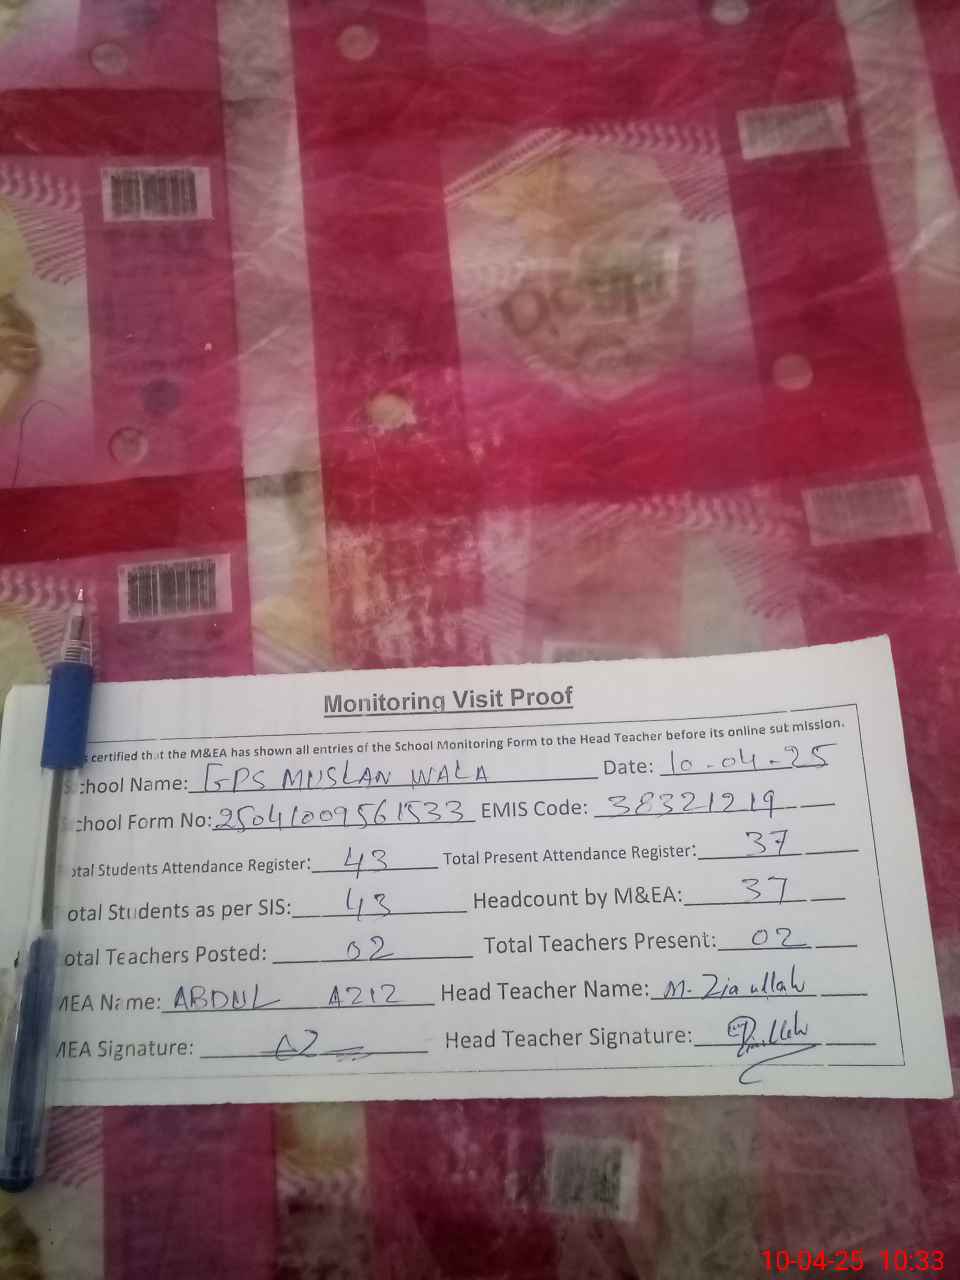 Monitoring Visit Proof
s certified that the M&EA has shown all entries of the School Monitoring Form to the Head Teacher before its online submission.
School Name: GPS MUSLAN WALA Date: 10-04-25
School Form No: 25041009561533 EMIS Code: 38321219
otal Students Attendance Register: 43 Total Present Attendance Register: 37
otal Students as per SIS: 43 Headcount by M&EA: 37
otal Teachers Posted: 02 Total Teachers Present: 02
MEA Name: ABDUL AZIZ Head Teacher Name: M. Ziaullah
MEA Signature: Head Teacher Signature:
10-04-25 10:33